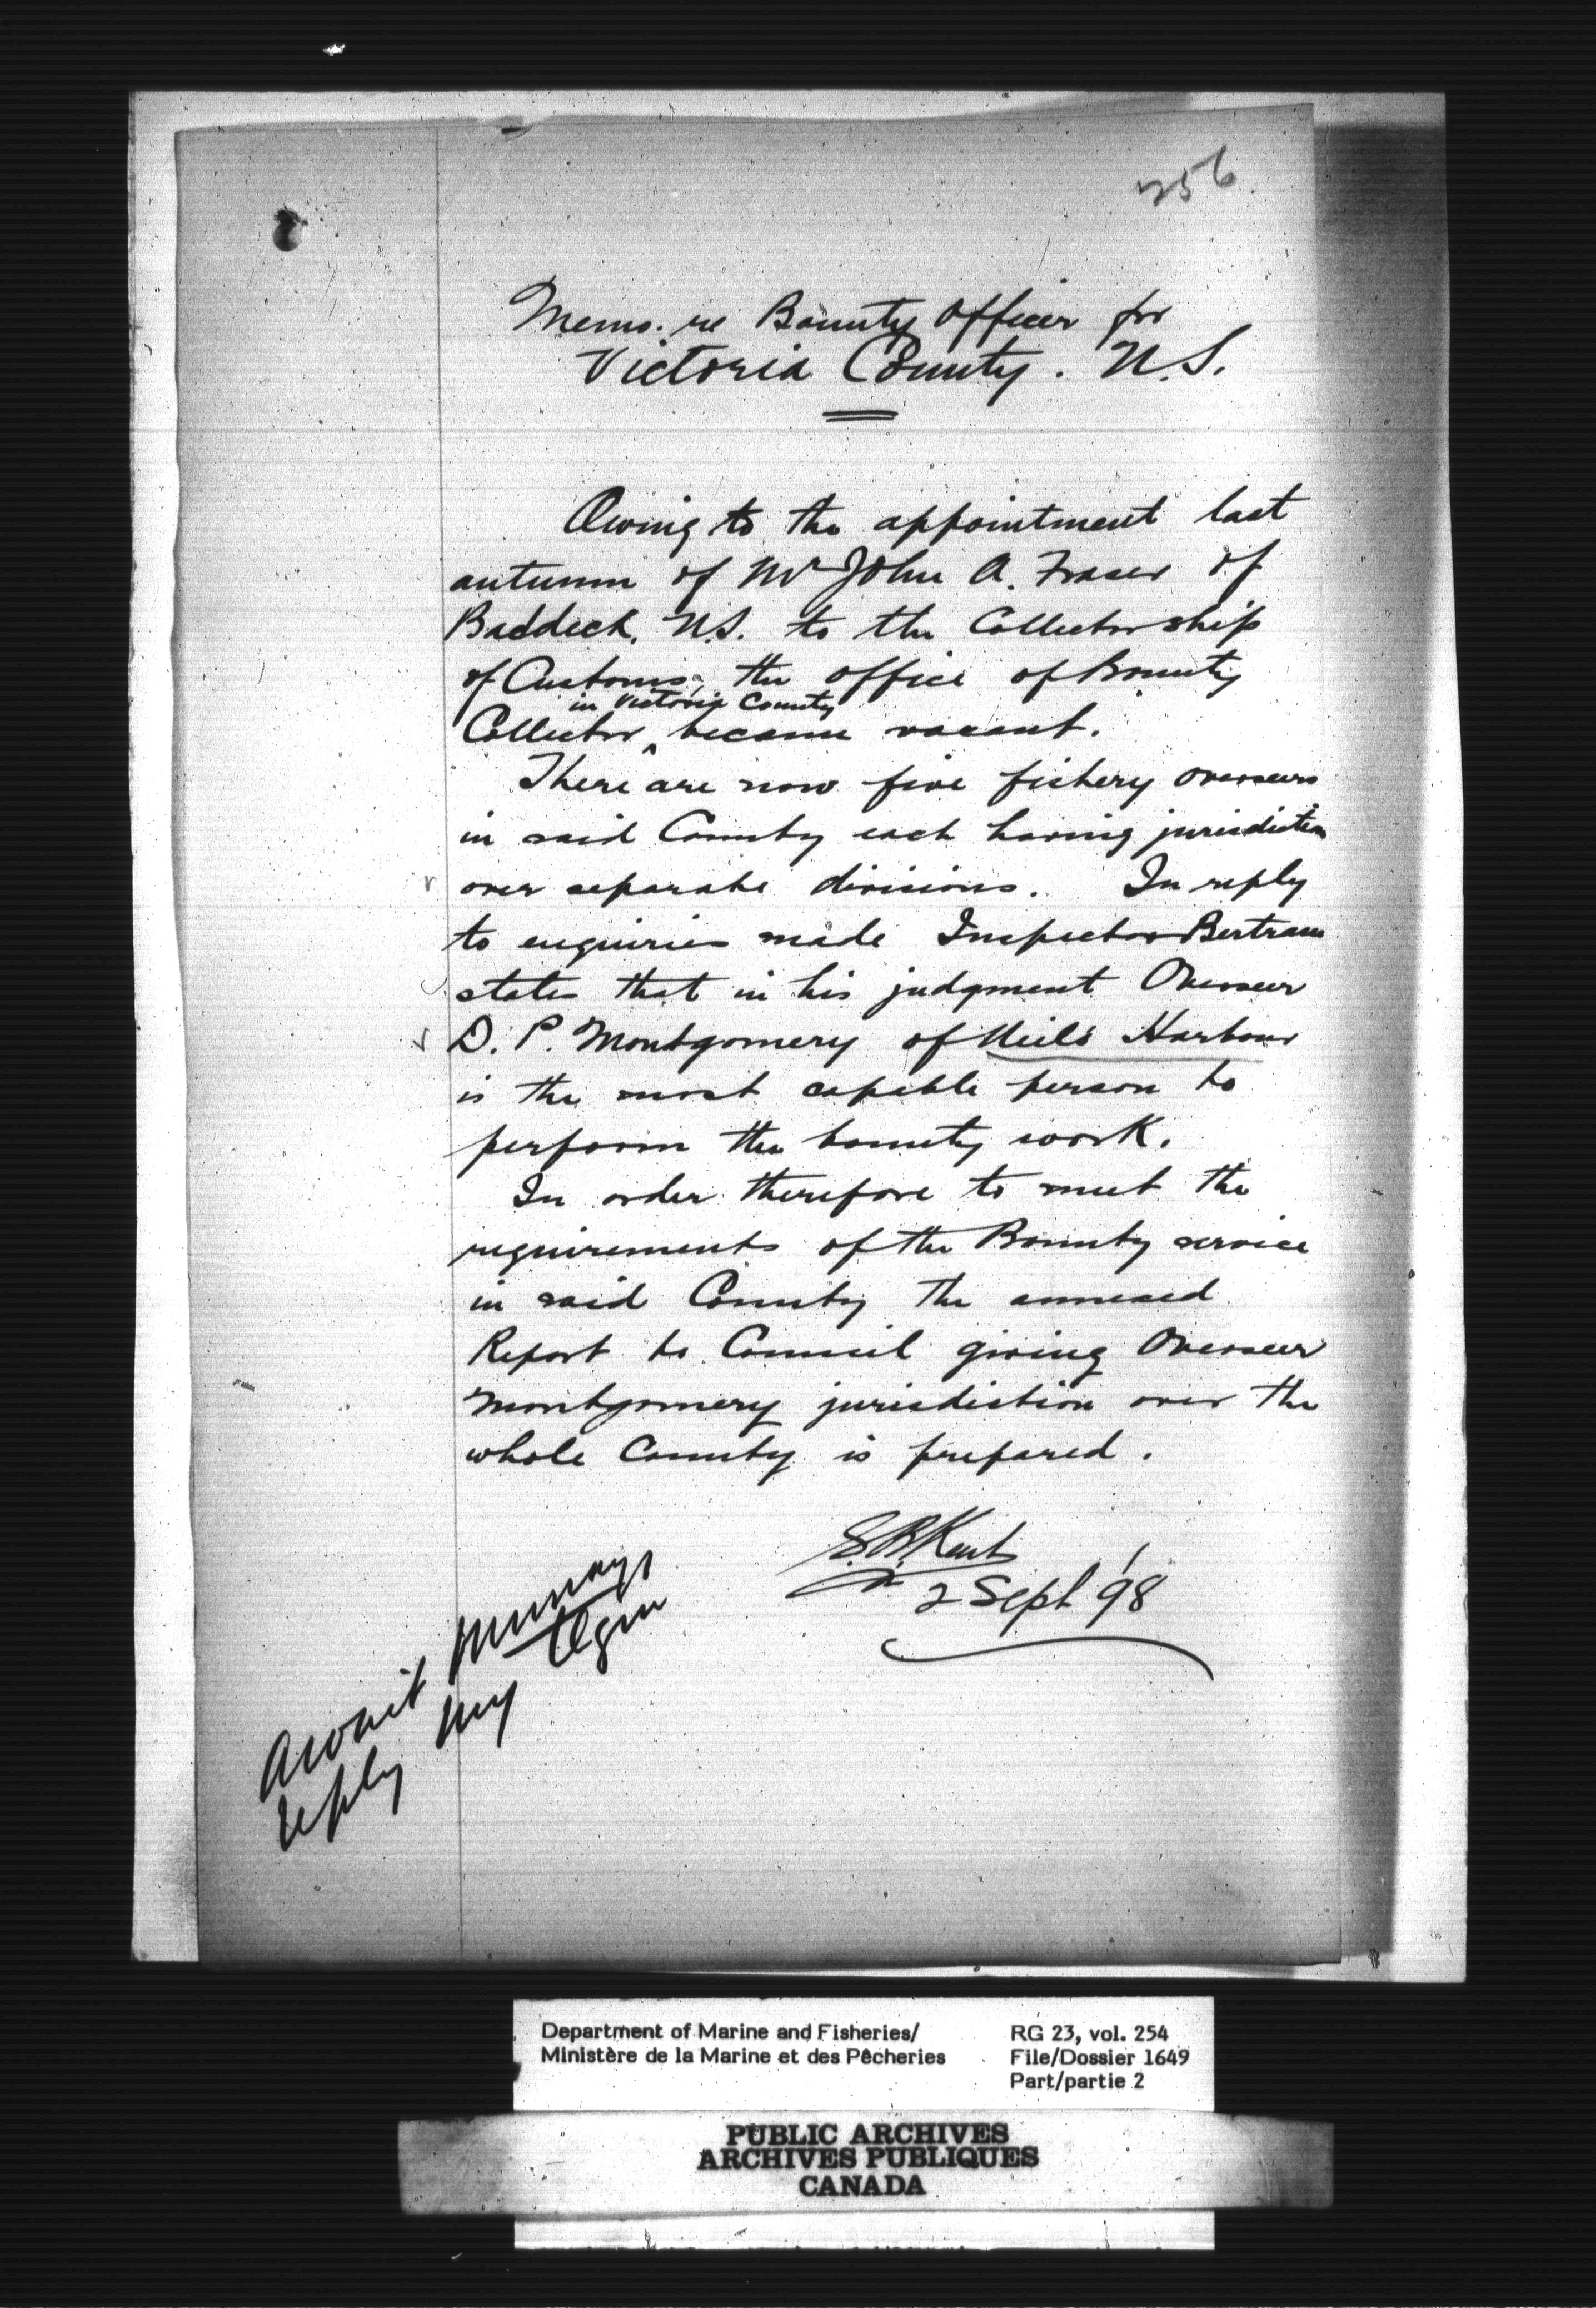 256
Memo. re Bounty Officer for
Victoria County. N.S.
Owing to the appointment last
autumn of Mr John A. Fraser of
Baddeck, N.S. to the Collectorship
of Customs, the office of Bounty
in Victoria County
Collector ^ became vacant.
There are now five fishery overseers
in said County each having jurisdiction
over separate divisions. In reply
to enquiries made Inspector Bertram
states that in his judgment Overseer
D. P. Montgomery of Neil's Harbour
is the most capable person to
perform the bounty work.
In order therefore to meet the
requirements of the Bounty service
in said County the annexed
Report to Council giving Overseer
Montgomery jurisdiction over the
whole County is prepared.
S.B. Kent
2 Sept '98
await Murrays
reply my
Department of Marine and Fisheries/
Ministère de la Marine et des Pêcheries
RG 23, vol. 254
File/Dossier 1649
Part/partie 2
PUBLIC ARCHIVES
ARCHIVES PUBLIQUES
CANADA